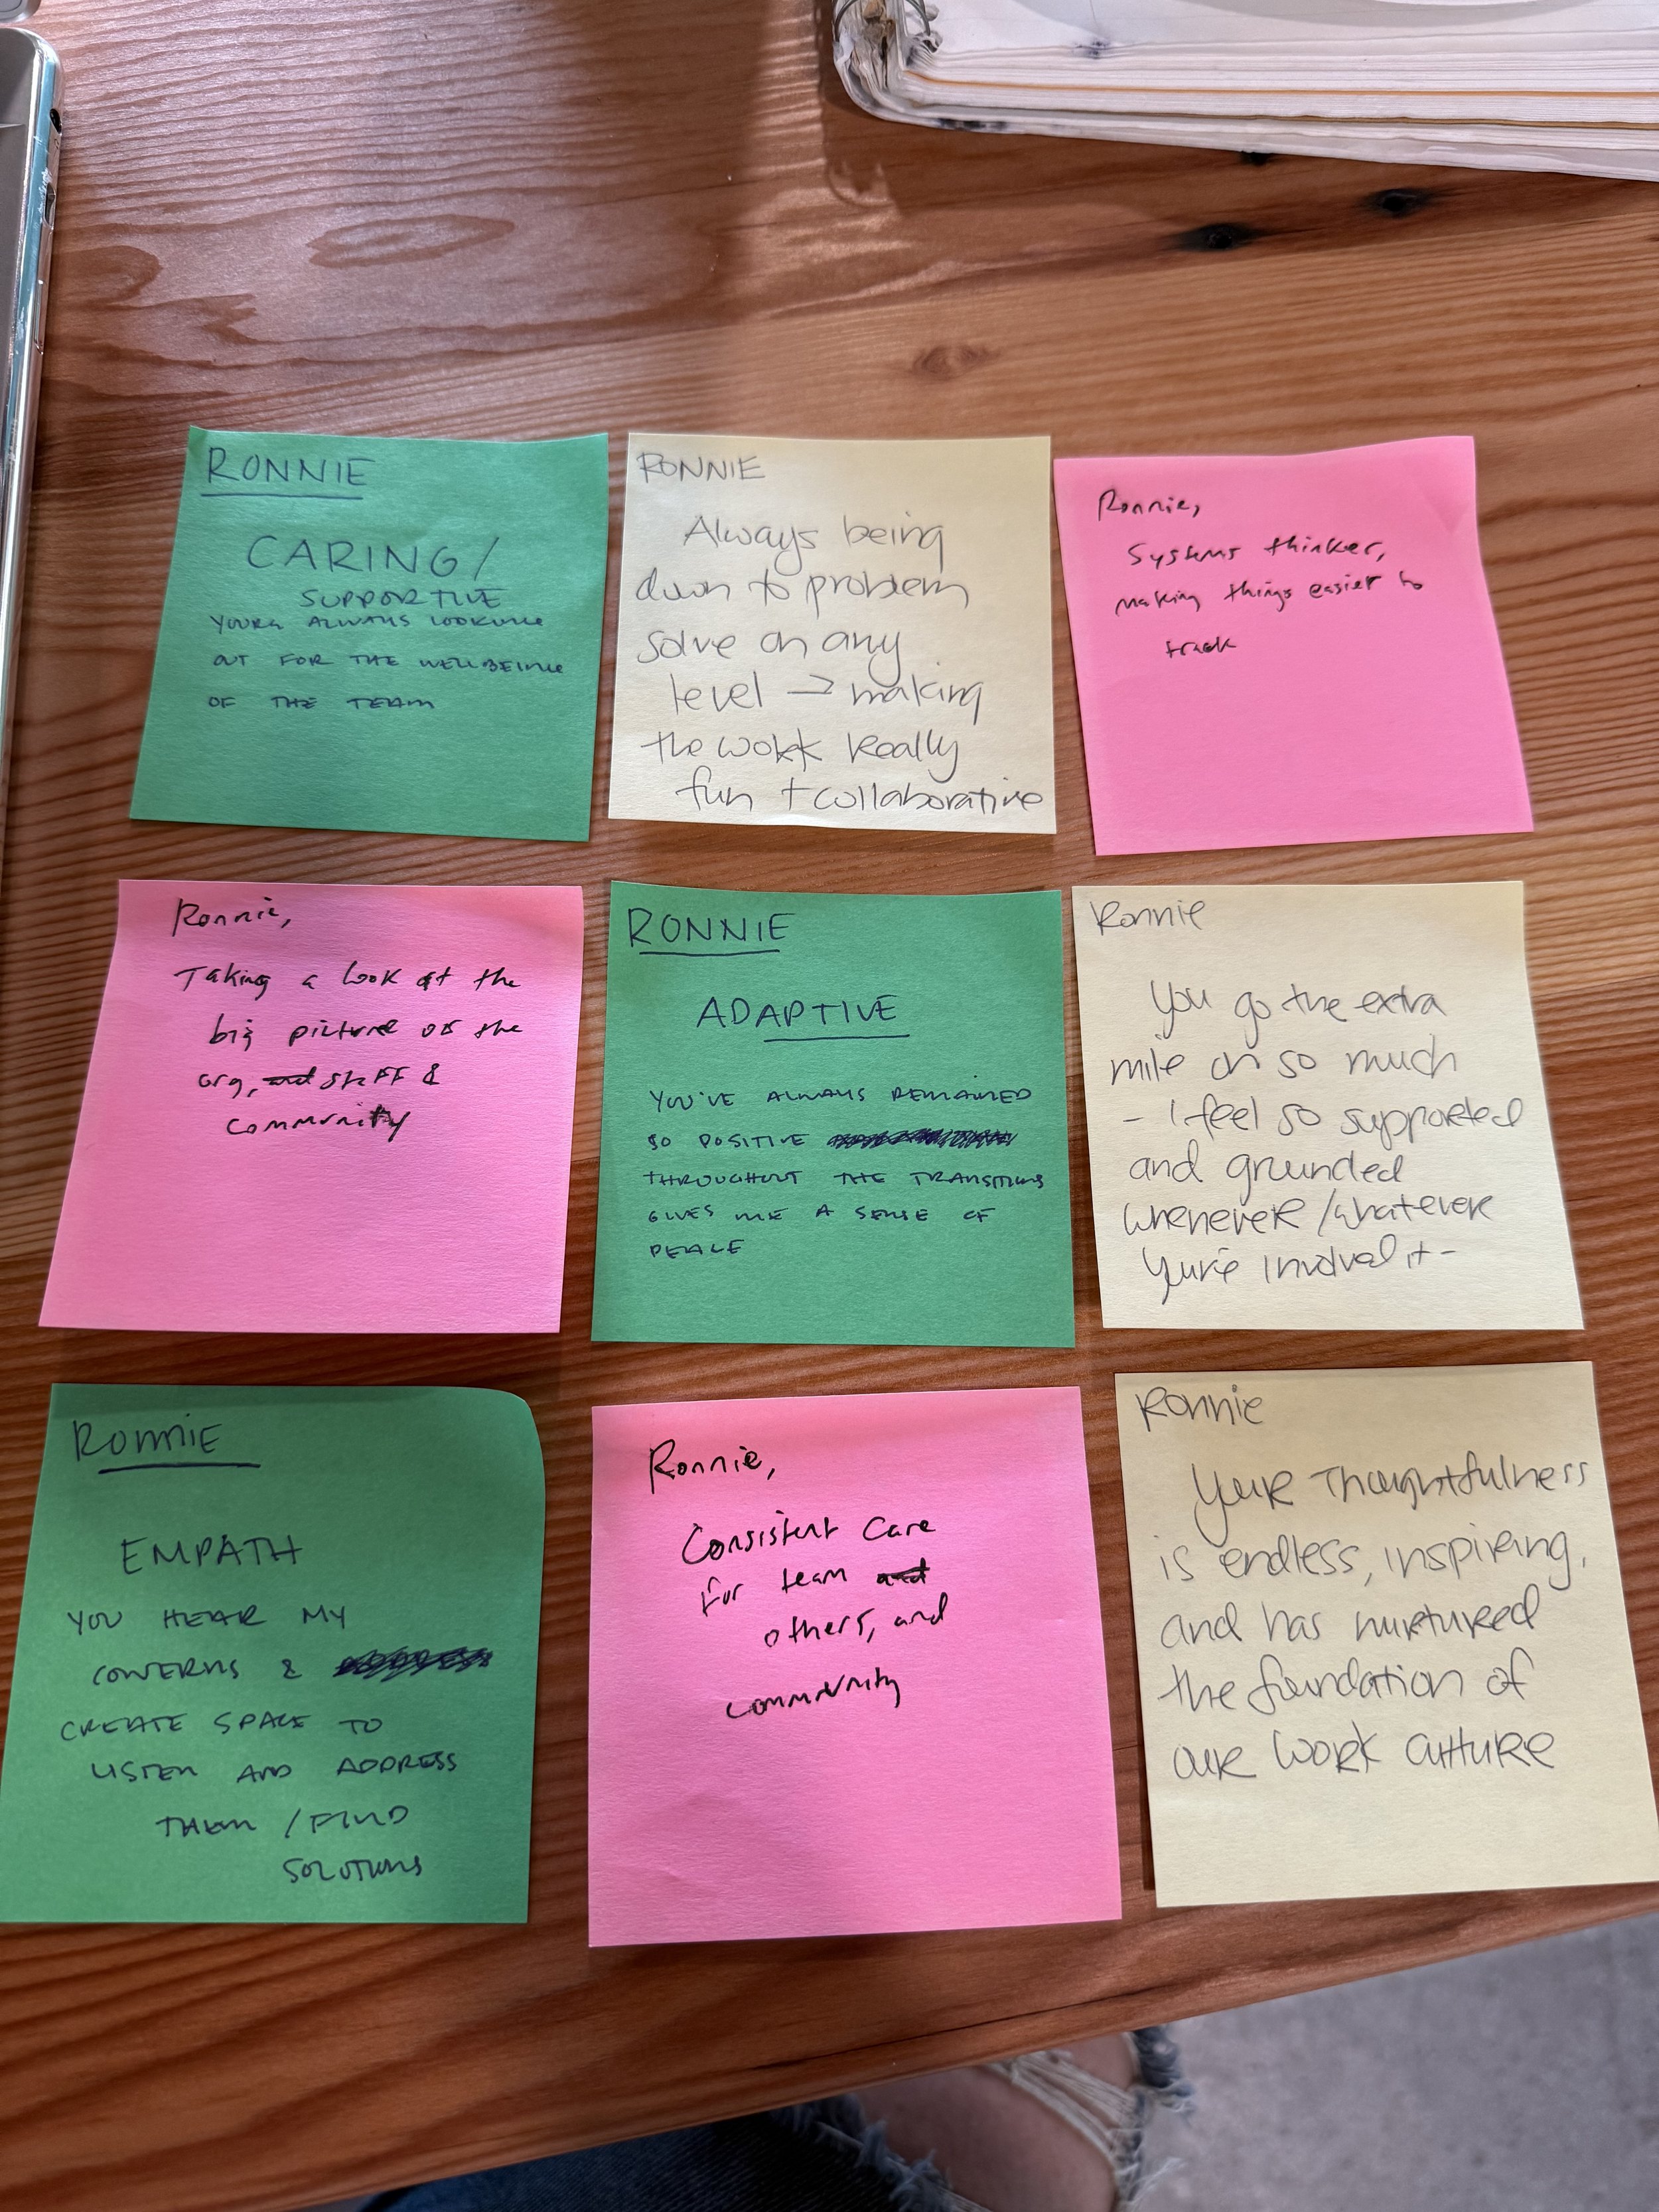 RONNIE
CARING/
SUPPORTIVE
YOURE ALWAYS LOOKING
OUT FOR THE WELLBEING
OF THE TEAM
RONNIE
Always being
down to problem
solve on any
level → making
the work Really
fun + collaborative
Ronnie,
Systems thinker,
making things easier to
track
Ronnie,
Taking a look at the
big picture of the
org, and staff &
community
RONNIE
ADAPTIVE
YOU'VE ALWAYS REMAINED
SO POSITIVE
THROUGHOUT THE TRANSITIONS
GIVES ME A SENSE OF
PEACE
Ronnie
You go the extra
mile on so much
- I feel so supported
and grounded
wheneveR/whatever
you're involved it -
RONNIE
EMPATH
YOU HEAR MY
CONCERNS &
CREATE SPACE TO
LISTEN AND ADDRESS
THEM / FIND
SOLUTIONS
Ronnie,
Consistent Care
for team and
others, and
community
Ronnie
YouR Thoughtfulness
is endless, inspiring,
and has nurtured
the foundation of
ouR work cultuRe